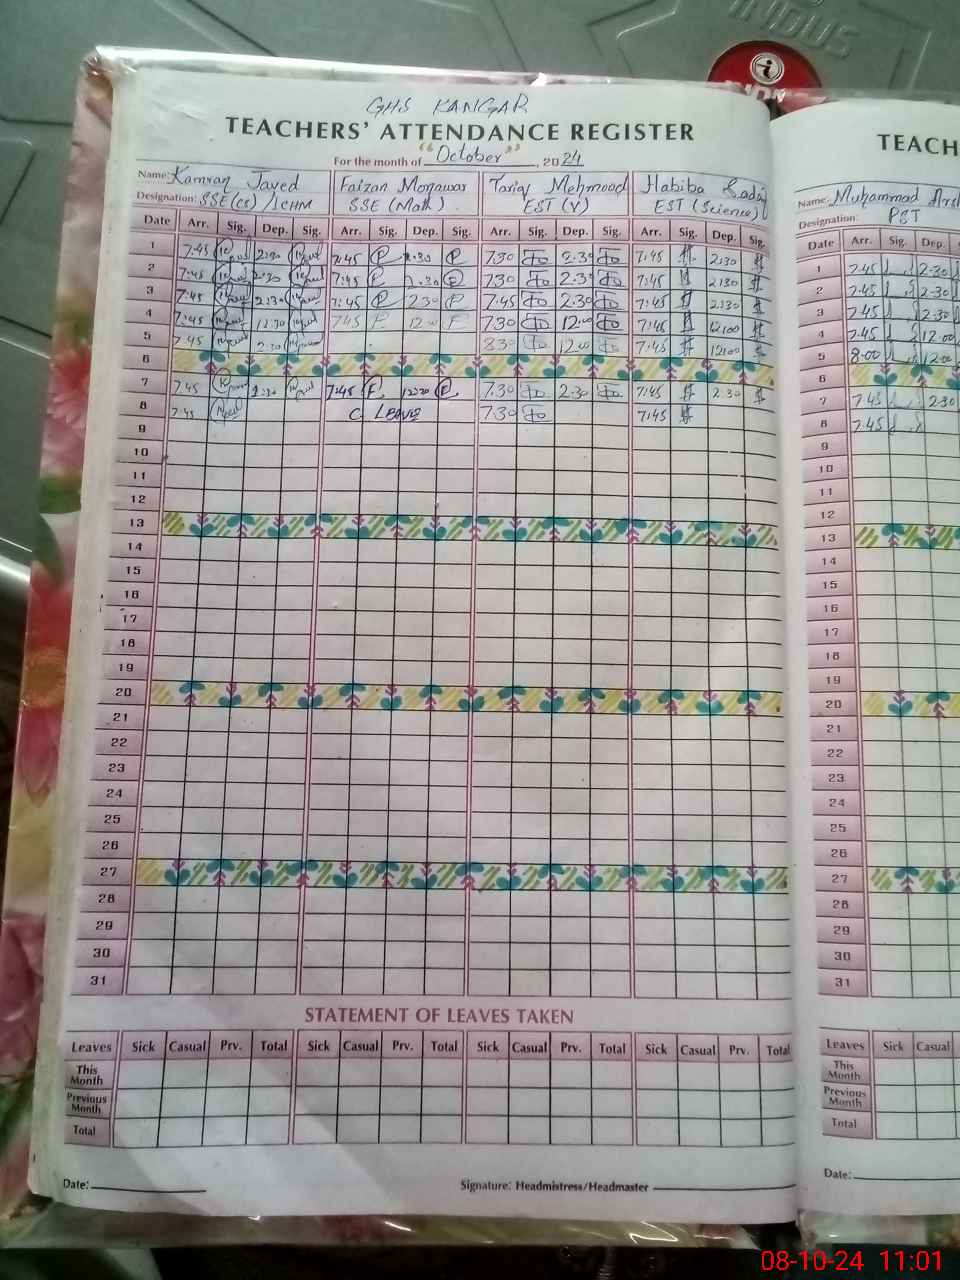 INDUS
GHS KANGAR
TEACHERS' ATTENDANCE REGISTER
For the month of "October", 2024
Name: Kamran Javed Faizan Monawar Tariq Mehmood Habiba
Designation: SSE (CS) / SSE (Math) EST (V) EST (Science)
Date Arr. Sig. Dep. Sig. Arr. Sig. Dep. Sig. Arr. Sig. Dep. Sig. Arr. Sig. Dep. Sig.
1 7:45 2:30 7:45 2:30 7:30 2:30 7:45 2:30
2 7:45 2:30 7:45 2:30 7:30 2:30 7:45 2:30
3 7:45 2:30 7:45 2:30 7:45 2:30 7:45 2:30
4 7:45 12:30 7:45 12:00 7:30 12:00 7:45 12:00
5 7:45 2:30 8:30 12:00 7:45 12:00
6
7 7:45 2:30 7:45 12:30 7:30 2:30 7:45 2:30
8 7:45 C Leave 7:30 7:45
9
10
11
12
13
14
15
16
17
18
19
20
21
22
23
24
25
26
27
28
29
30
31
STATEMENT OF LEAVES TAKEN
Leaves Sick Casual Prv. Total Sick Casual Prv. Total Sick Casual Prv. Total Sick Casual Prv. Total
This
Month
Previous
Month
Total
Date: Signature: Headmistress/Headmaster
TEACH
Name: Muhammad
Designation: PST
Date Arr. Sig. Dep.
1 7:45 2:30
2 7:45 2:30
3 7:45 2:30
4 7:45 12:00
5 8:00 12:00
6
7 7:45 2:30
8 7:45
9
10
11
12
13
14
15
16
17
18
19
20
21
22
23
24
25
26
27
28
29
30
31
Leaves Sick Casual
This
Month
Previous
Month
Total
Date:
08-10-24 11:01